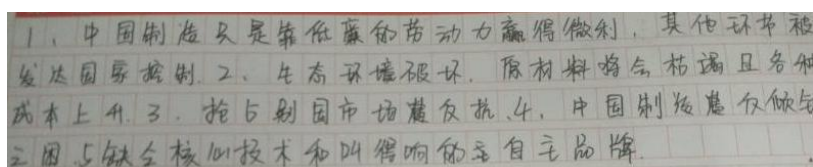 1、中国制造只是靠低廉的劳动力赢得微利,其他环节被
发达国家控制.2、生态环境被破坏.原材料将会枯竭且各种
成本上升.3.抢占别国市场遭反抗.4.中国制造遭反倾销
之困.5缺乏核心技术和叫得响的主自主品牌.